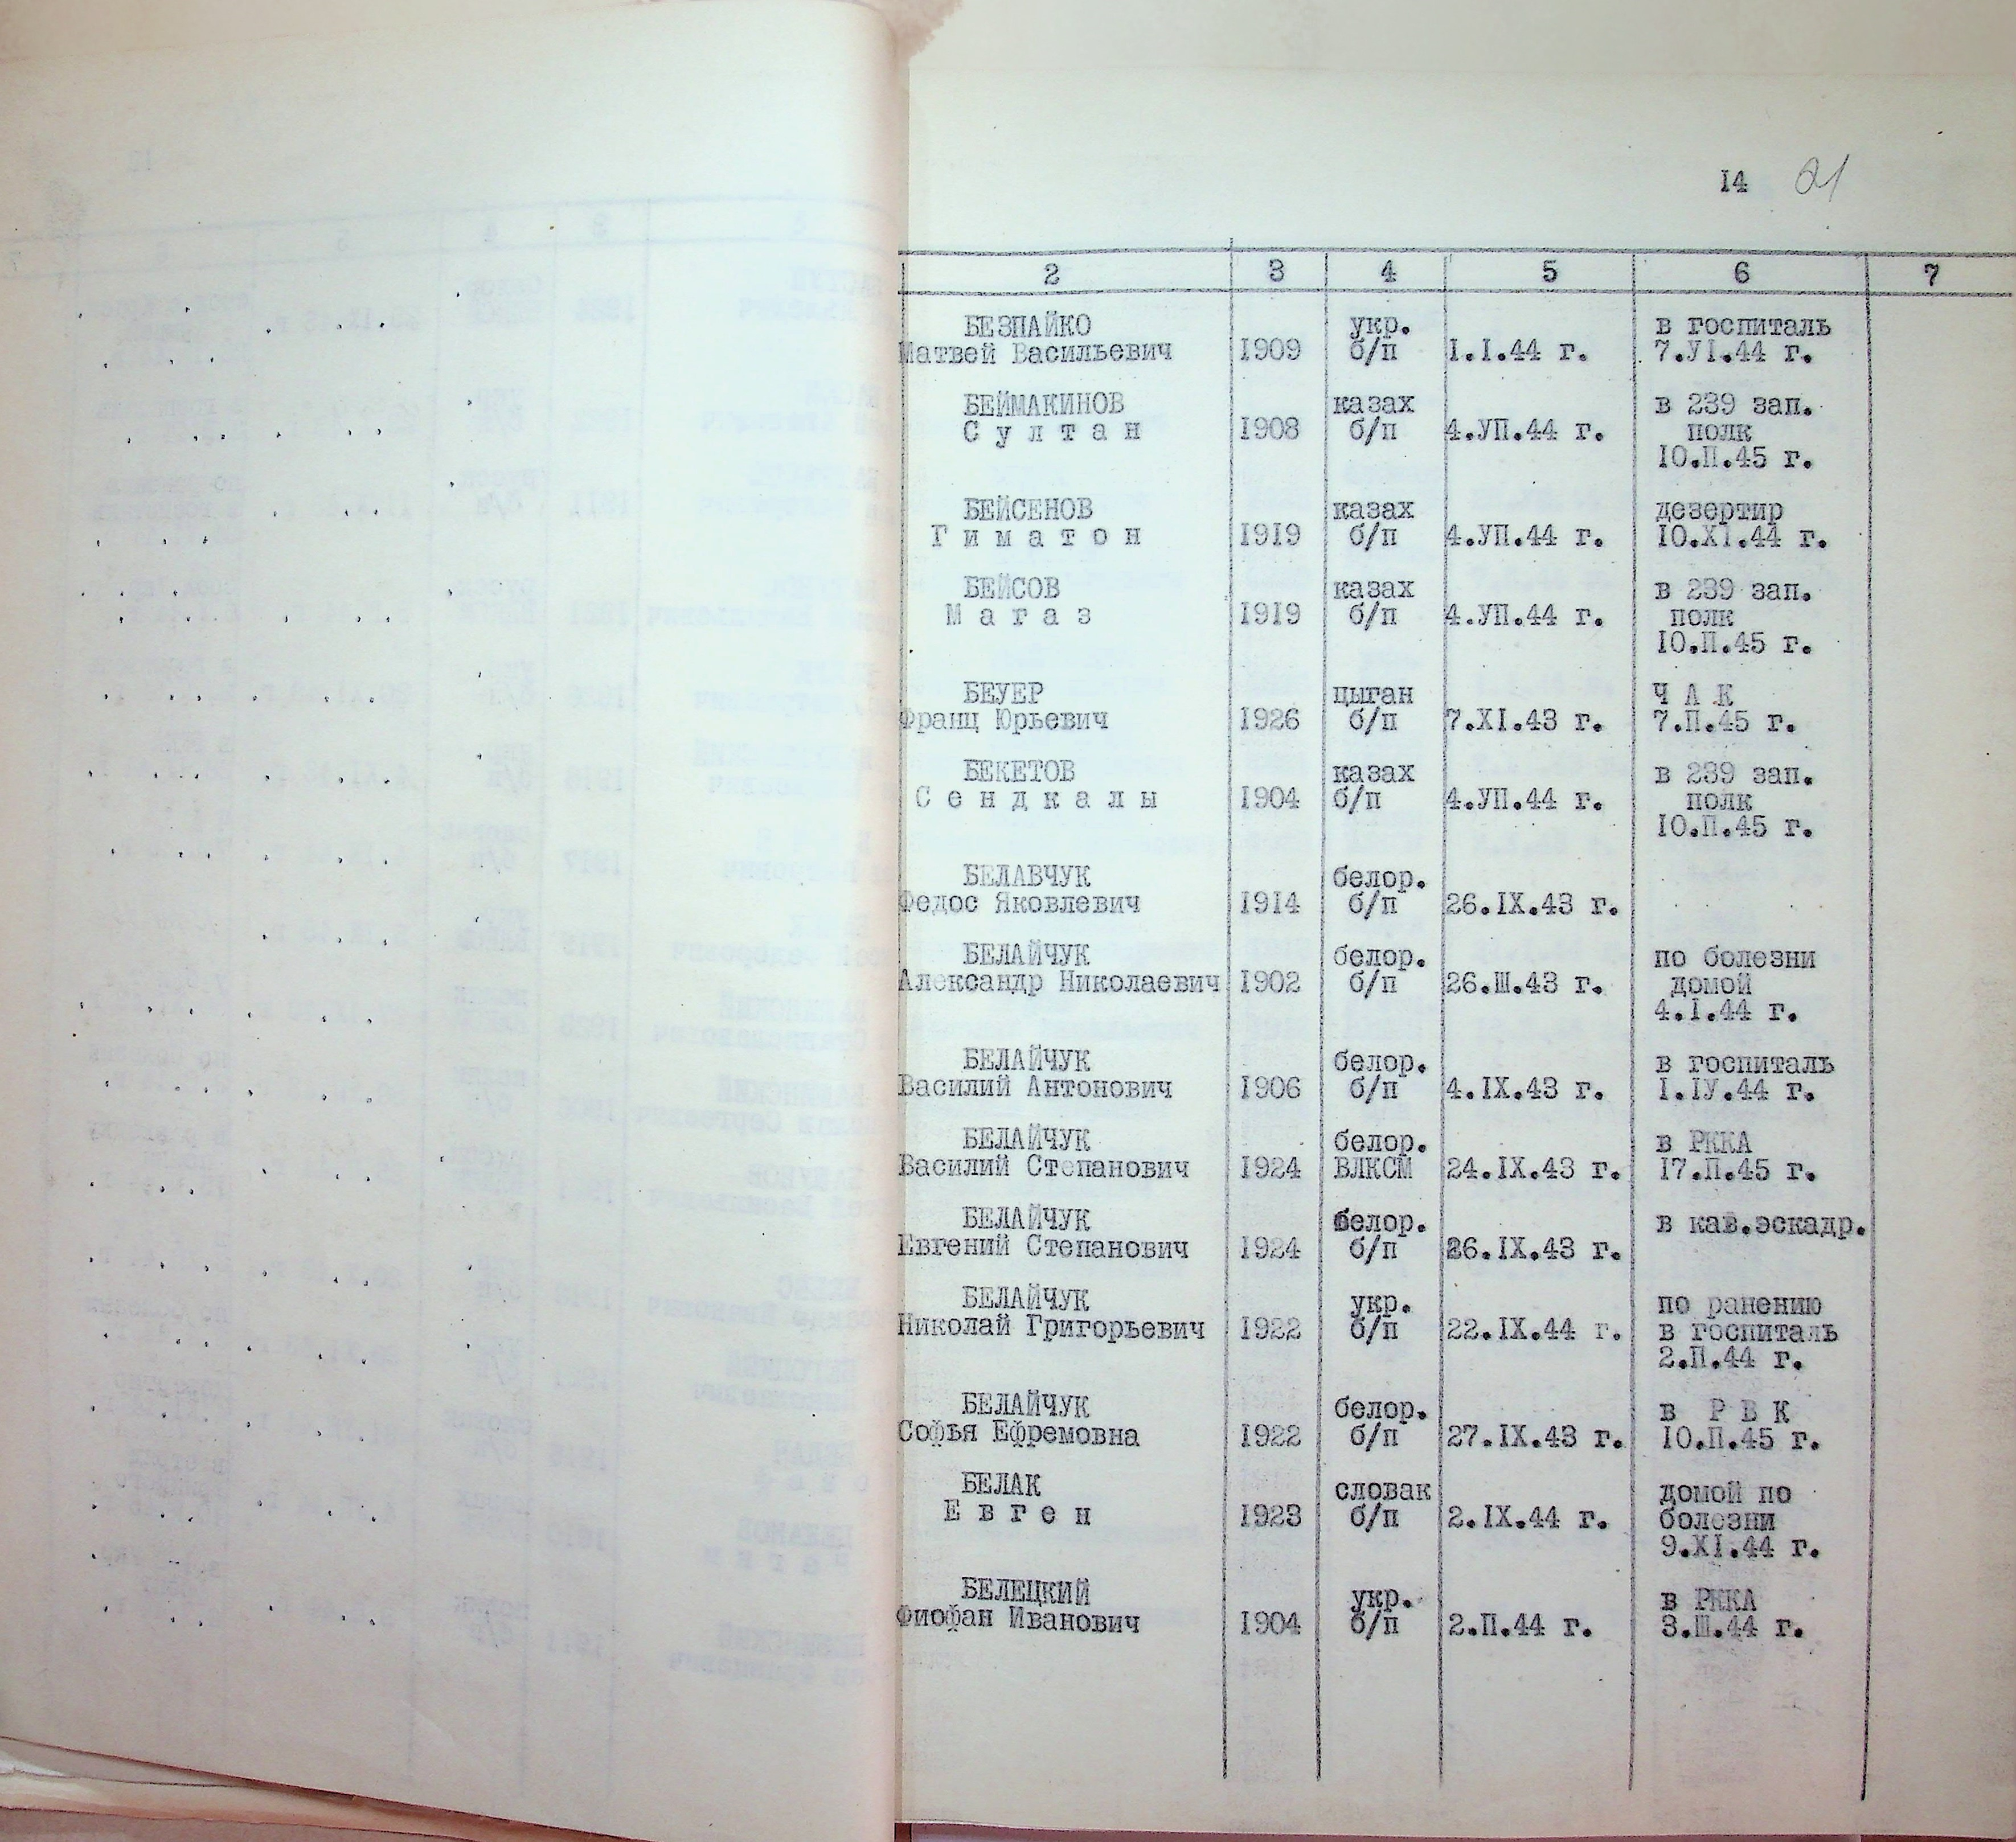 14 21
2 3 4 5 6 7
БЕЗПАЙКО укр. в госпиталь
Матвей Васильевич 1909 б/п I.I.44 г. 7.УI.44 г.
БЕЙМАКИНОВ казах в 239 зап.
С у л т а н 1908 б/п 4.УП.44 г. полк
10.П.45 г.
БЕЙСЕНОВ казах дезертир
Г и м а т о н 1919 б/п 4.УП.44 г. 10.XI.44 г.
БЕЙСОВ казах в 239 зап.
М а г а з 1919 б/п 4.УП.44 г. полк
10.П.45 г.
БЕУЕР цыган Ч А К
Франц Юрьевич 1926 б/п 7.XI.43 г. 7.П.45 г.
БЕКЕТОВ казах в 239 зап.
С е н д к а л ы 1904 б/п 4.УП.44 г. полк
10.П.45 г.
БЕЛАВЧУК белор.
Федос Яковлевич 1914 б/п 26.IX.43 г.
БЕЛАЙЧУК белор. по болезни
Александр Николаевич 1902 б/п 26.Ш.43 г. домой
4.I.44 г.
БЕЛАЙЧУК белор. в госпиталь
Василий Антонович 1906 б/п 4.IX.43 г. I.IУ.44 г.
БЕЛАЙЧУК белор. в РККА
Василий Степанович 1924 ВЛКСМ 24.IX.43 г. 17.П.45 г.
БЕЛАЙЧУК белор. в кав.эскадр.
Евгений Степанович 1924 б/п 26.IX.43 г.
БЕЛАЙЧУК укр. по ранению
Николай Григорьевич 1922 б/п 22.IX.44 г. в госпиталь
2.П.44 г.
БЕЛАЙЧУК белор. в Р В К
Софья Ефремовна 1922 б/п 27.IX.43 г. 10.П.45 г.
БЕЛАК словак домой по
Е в г е н 1923 б/п 2.IX.44 г. болезни
9.XI.44 г.
БЕЛЕЦКИЙ укр. в РККА
Фиофан Иванович 1904 б/п 2.П.44 г. 3.Ш.44 г.